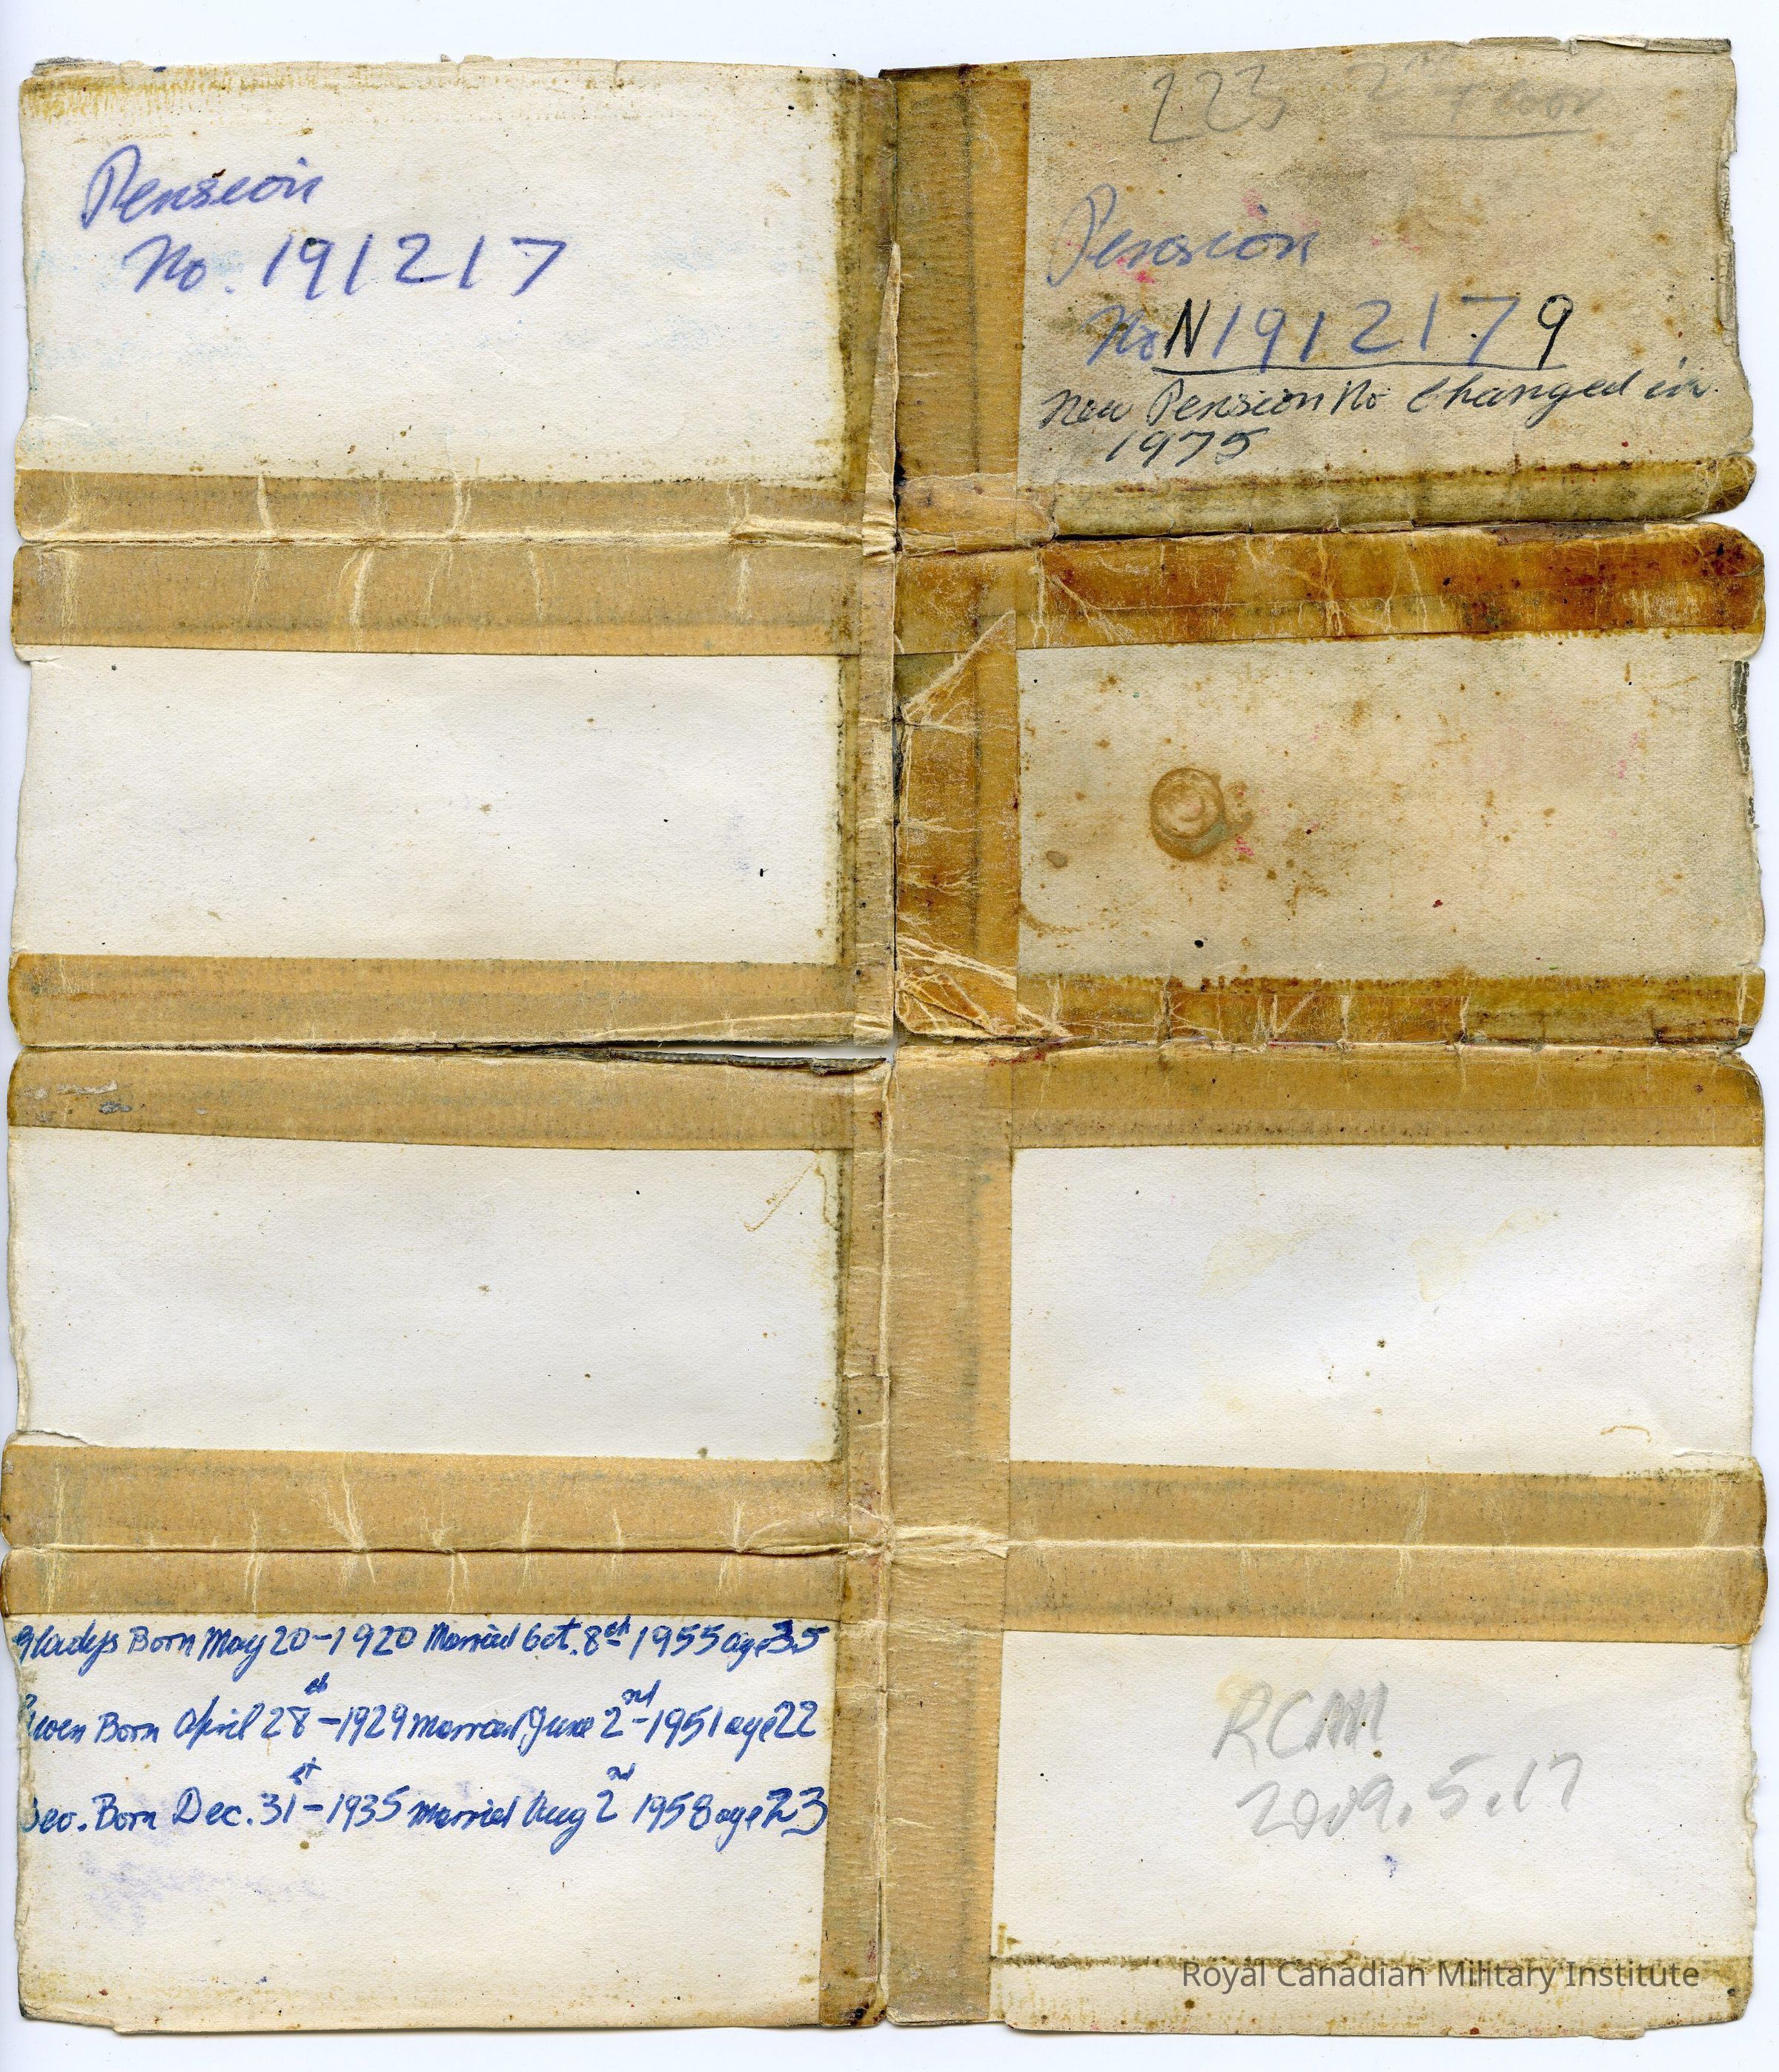 Pension
No. 191217
223 2nd Floor
Pension
No N1912179
New Pension No Changed in
1975
Gladys Born May 20-1920 Married Oct. 8th 1955 age 35
Born April 28th-1929 Married June 2nd-1951 age 22
Geo. Born Dec. 31st-1935 Married Aug 2nd 1958 age 23
RCMI
2009.5.17
Royal Canadian Military Institute